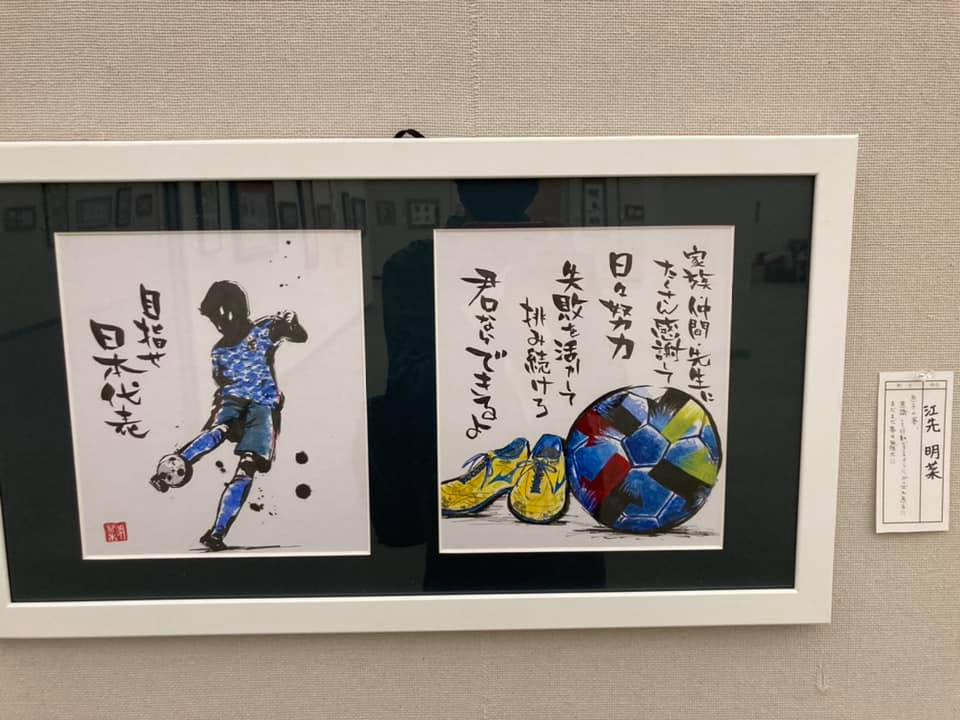 目指せ
日本代表
家族 仲間 先生に
たくさん感謝して
日々努力
失敗を活かして
挑み続けろ
君ならできるよ
江先 明菜
息子の夢、